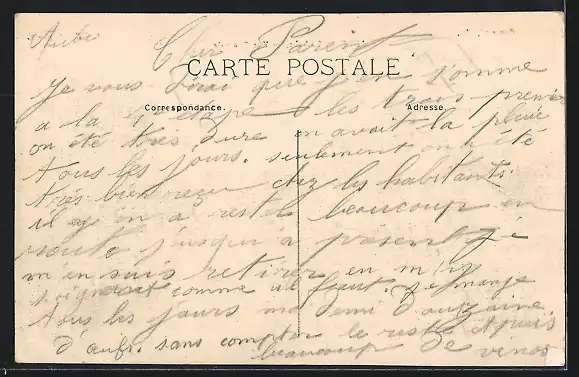 Cher Parent
CARTE POSTALE
Correspondance. Adresse.
Je vous dirai que j'en somme
a la 4 etape les trois premier
on été très dure on avait la pluie
tous les jours. seulement on a été
très bien reçu chez les habitants.
il y en a resté beaucoup en
route jusqu'à présent je
m'en suis retirer en m'y
soignant comme il faut. je mange
tous les jours ma demi douzaine
d'œufs. sans compter le reste et puis
beaucoup de vinos